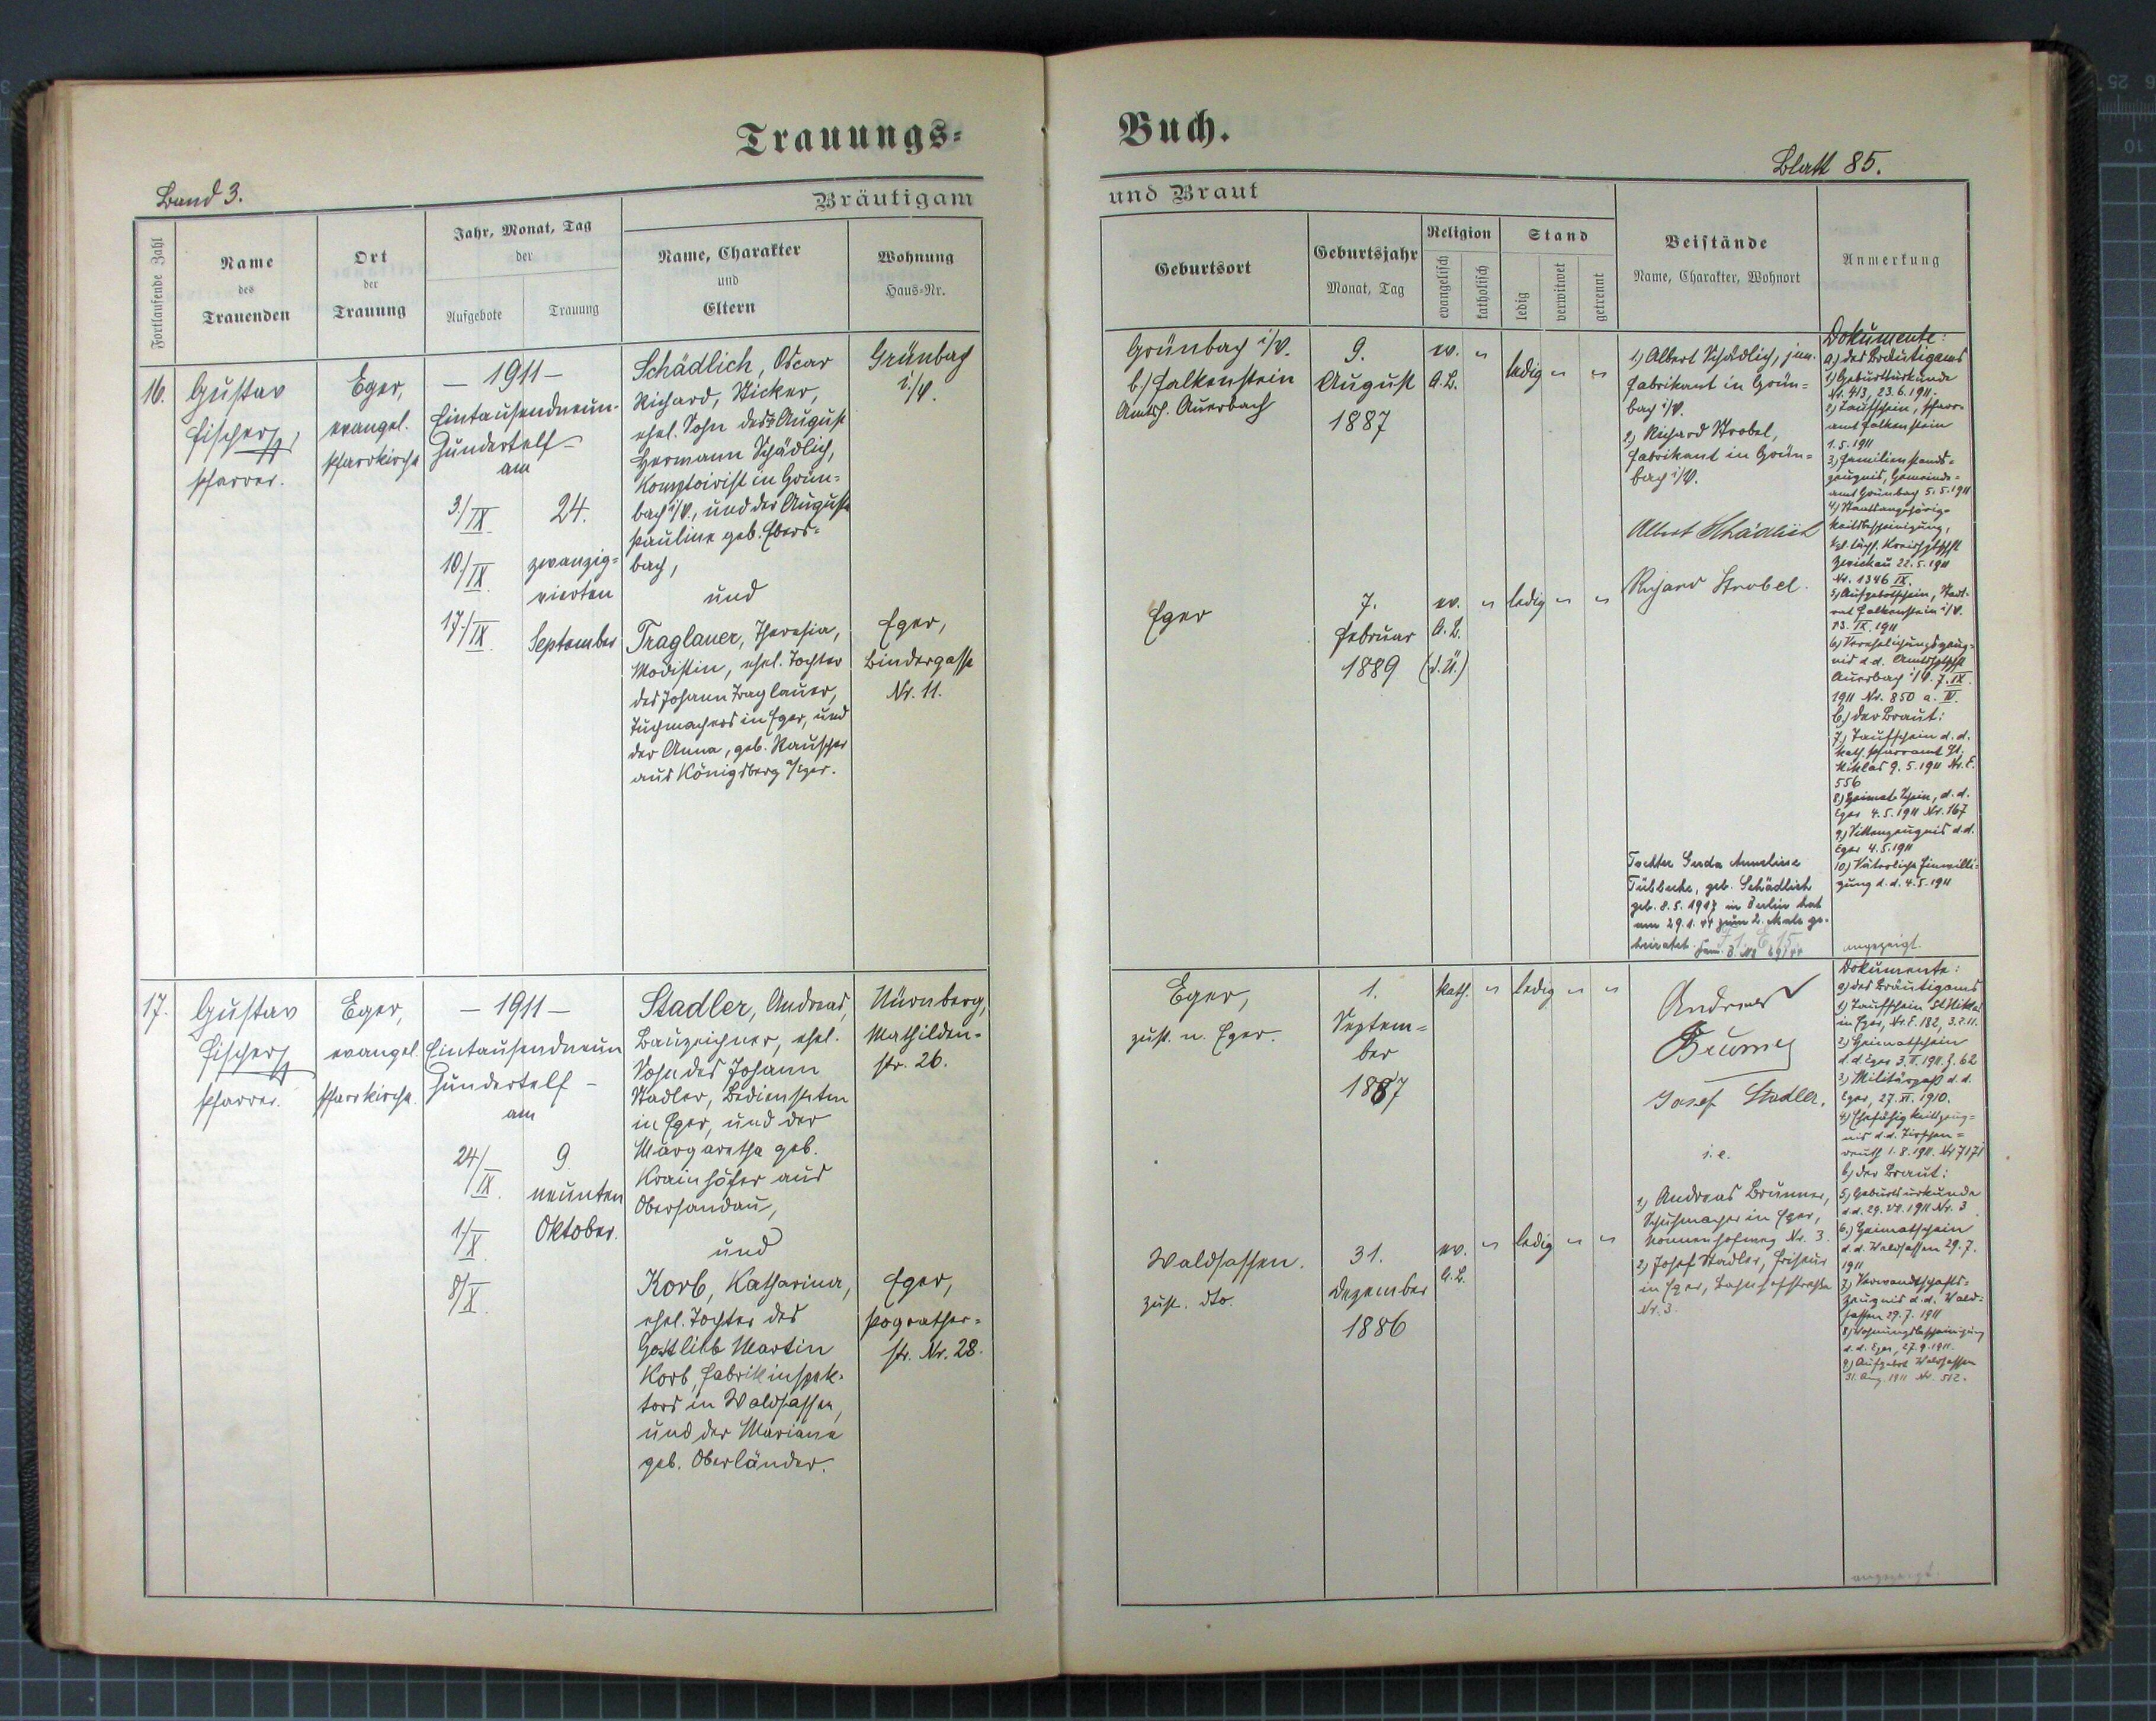 Trauungs=
Band 3.
Bräutigam
Fortlaufende Zahl
Name
des
Trauenden
Ort
der
Trauung
Jahr, Monat, Tag
der
Aufgebote
Trauung
Name, Charakter
und
Eltern
Wohnung
Haus=Nr.
16.
Gustav
Fischer,
Pfarrer.
Eger,
evangel.
Pfarrkirche
— 1911 —
Eintausendneun-
hundertelf –
am
3./IX
10./IX
17./IX
24.
zwanzig=
vierten
September
Schädlich, Oscar
Richard, Sticker,
ehel. Sohn des August
Hermann Schädlich,
Komptoirist in Grün=
bach i/V., und der Auguste
Pauline geb. Ebers=
bach,
und
Traglauer, Theresia,
Modistin, ehel. Tochter
des Johann Traglauer,
Tuchmachers in Eger, und
der Anna, geb. Rauscher
aus Königsberg a/Eger.
Grünbach
i./V.
Eger,
Bindergasse
Nr. 11.
17.
Gustav
Fischer
Pfarrer.
Eger,
evangel.
Pfarrkirche.
— 1911 —
Eintausendneun
hundertelf –
am
24/IX.
1/X
8/X
9
neunten
Oktober.
Stadler, Andreas,
Bauzeichner, ehel.
Sohn des Johann
Stadler, Bediensteten
in Eger, und der
Margaretha geb.
Krainhöfer aus
Obersandau,
und
Korb, Katharina,
ehel. Tochter des
Gottlieb Martin
Korb, Fabrikinspek-
tors in Waldsassen,
und der Mariana
geb. Oberländer.
Nürnberg,
Mathilden-
str. 26.
Eger,
Pograther=
str. Nr. 28.
Buch.
Blatt 85.
und Braut
Geburtsort
Geburtsjahr
Monat, Tag
Religion
evangelisch
katholisch
Stand
ledig
verwitwet
getrennt
Beistände
Name, Charakter, Wohnort
Anmerkung
Grünbach i/V.
b./Falkenstein
Amtsh. Auerbach
9.
August
1887
ev. "
A.B.
ledig " "
1) Albert Schädlich, jun.
Fabrikant in Grün=
bach i/V.
2) Richard Strobel,
Fabrikant in Grün=
bach i/V.
Albert Schädlich
Richard Strobel.
Eger
7.
Februar
1889
ev. " ledig " "
A.B.
(d.Ü.)
Tochter Gerda Annelise
geb. Schädlich
geb. 8.5.1917 in Berlin hat
am 29.1.44 zum 2. Male ge-
heiratet.
Dokumente:
a) des Bräutigams
1) Geburtsurkunde
Nr. 413, 23.6.1911.
2) Taufschein, Pfarr-
amt Falkenstein
1.5.1911
3) Familienstands=
zeugnis, Gemeinde=
amt Grünbach 5.5.1911
4) Staatsangehörig-
keitsbescheinigung,
Kgl. sächs. Kreishptschft
Zwickau 22.5.1911
Nr. 1346 IX.
5) Aufgebotschein, Stadt-
rat Falkenstein i/V.
13. IX. 1911
6) Verehelichungszeug-
nis d.d. Amtshptschft
Auerbach i/V. 7. IX.
1911 Nr. 850 a. IV.
b) der Braut:
7) Taufschein d.d.
kath. Pfarramt St.
Niklas 9.5.1911 Nr. E.
556
8) Heimatschein, d.d.
Eger 4.5.1911 Nr. 167
9) Sittenzeugnis d.d.
Eger 4.5.1911
10) Väterliche Einwilli=
gung d.d. 4.5.1911
angezeigt.
Eger,
zust. n. Eger.
1.
Septem=
ber
1887
kath. " ledig " "
Andreas
Brunner
Josef Stadler.
i.e.
1) Andreas Brunner,
Schuhmacher in Eger,
Nonnenhofweg Nr. 3.
2) Josef Stadler, Friseur
in Eger, Bahnhofstrasse
Nr. 3.
Waldsassen.
zust. dto.
31.
Dezember
1886
ev. " ledig " "
A.B.
Dokumente:
a) des Bräutigams
1) Taufschein St. Niklas
in Eger, Nr. E. 182, 3.2.11.
2) Heimatschein
d.d. Eger 3.II.1911. Z. 62
3) Militärpass d.d.
Eger, 27. XI. 1910.
4) Ehefähigkeitszeug=
nis d.d. Tirschen=
reuth 1.8.1911. Nr. 7171
b) der Braut:
5) Geburtsurkunde
d.d. 29. VII. 1911 Nr. 3
6.) Heimatschein
d.d. Waldsassen 29.7.
1911
7) Verwandtschafts=
zeugnis d.d. Wald=
sassen 29.7.1911
8) Wohnungsbescheinigung
d.d. Eger, 27.9.1911.
9) Aufgebot Waldsassen
31. Aug. 1911 Nr. 512.
angezeigt.